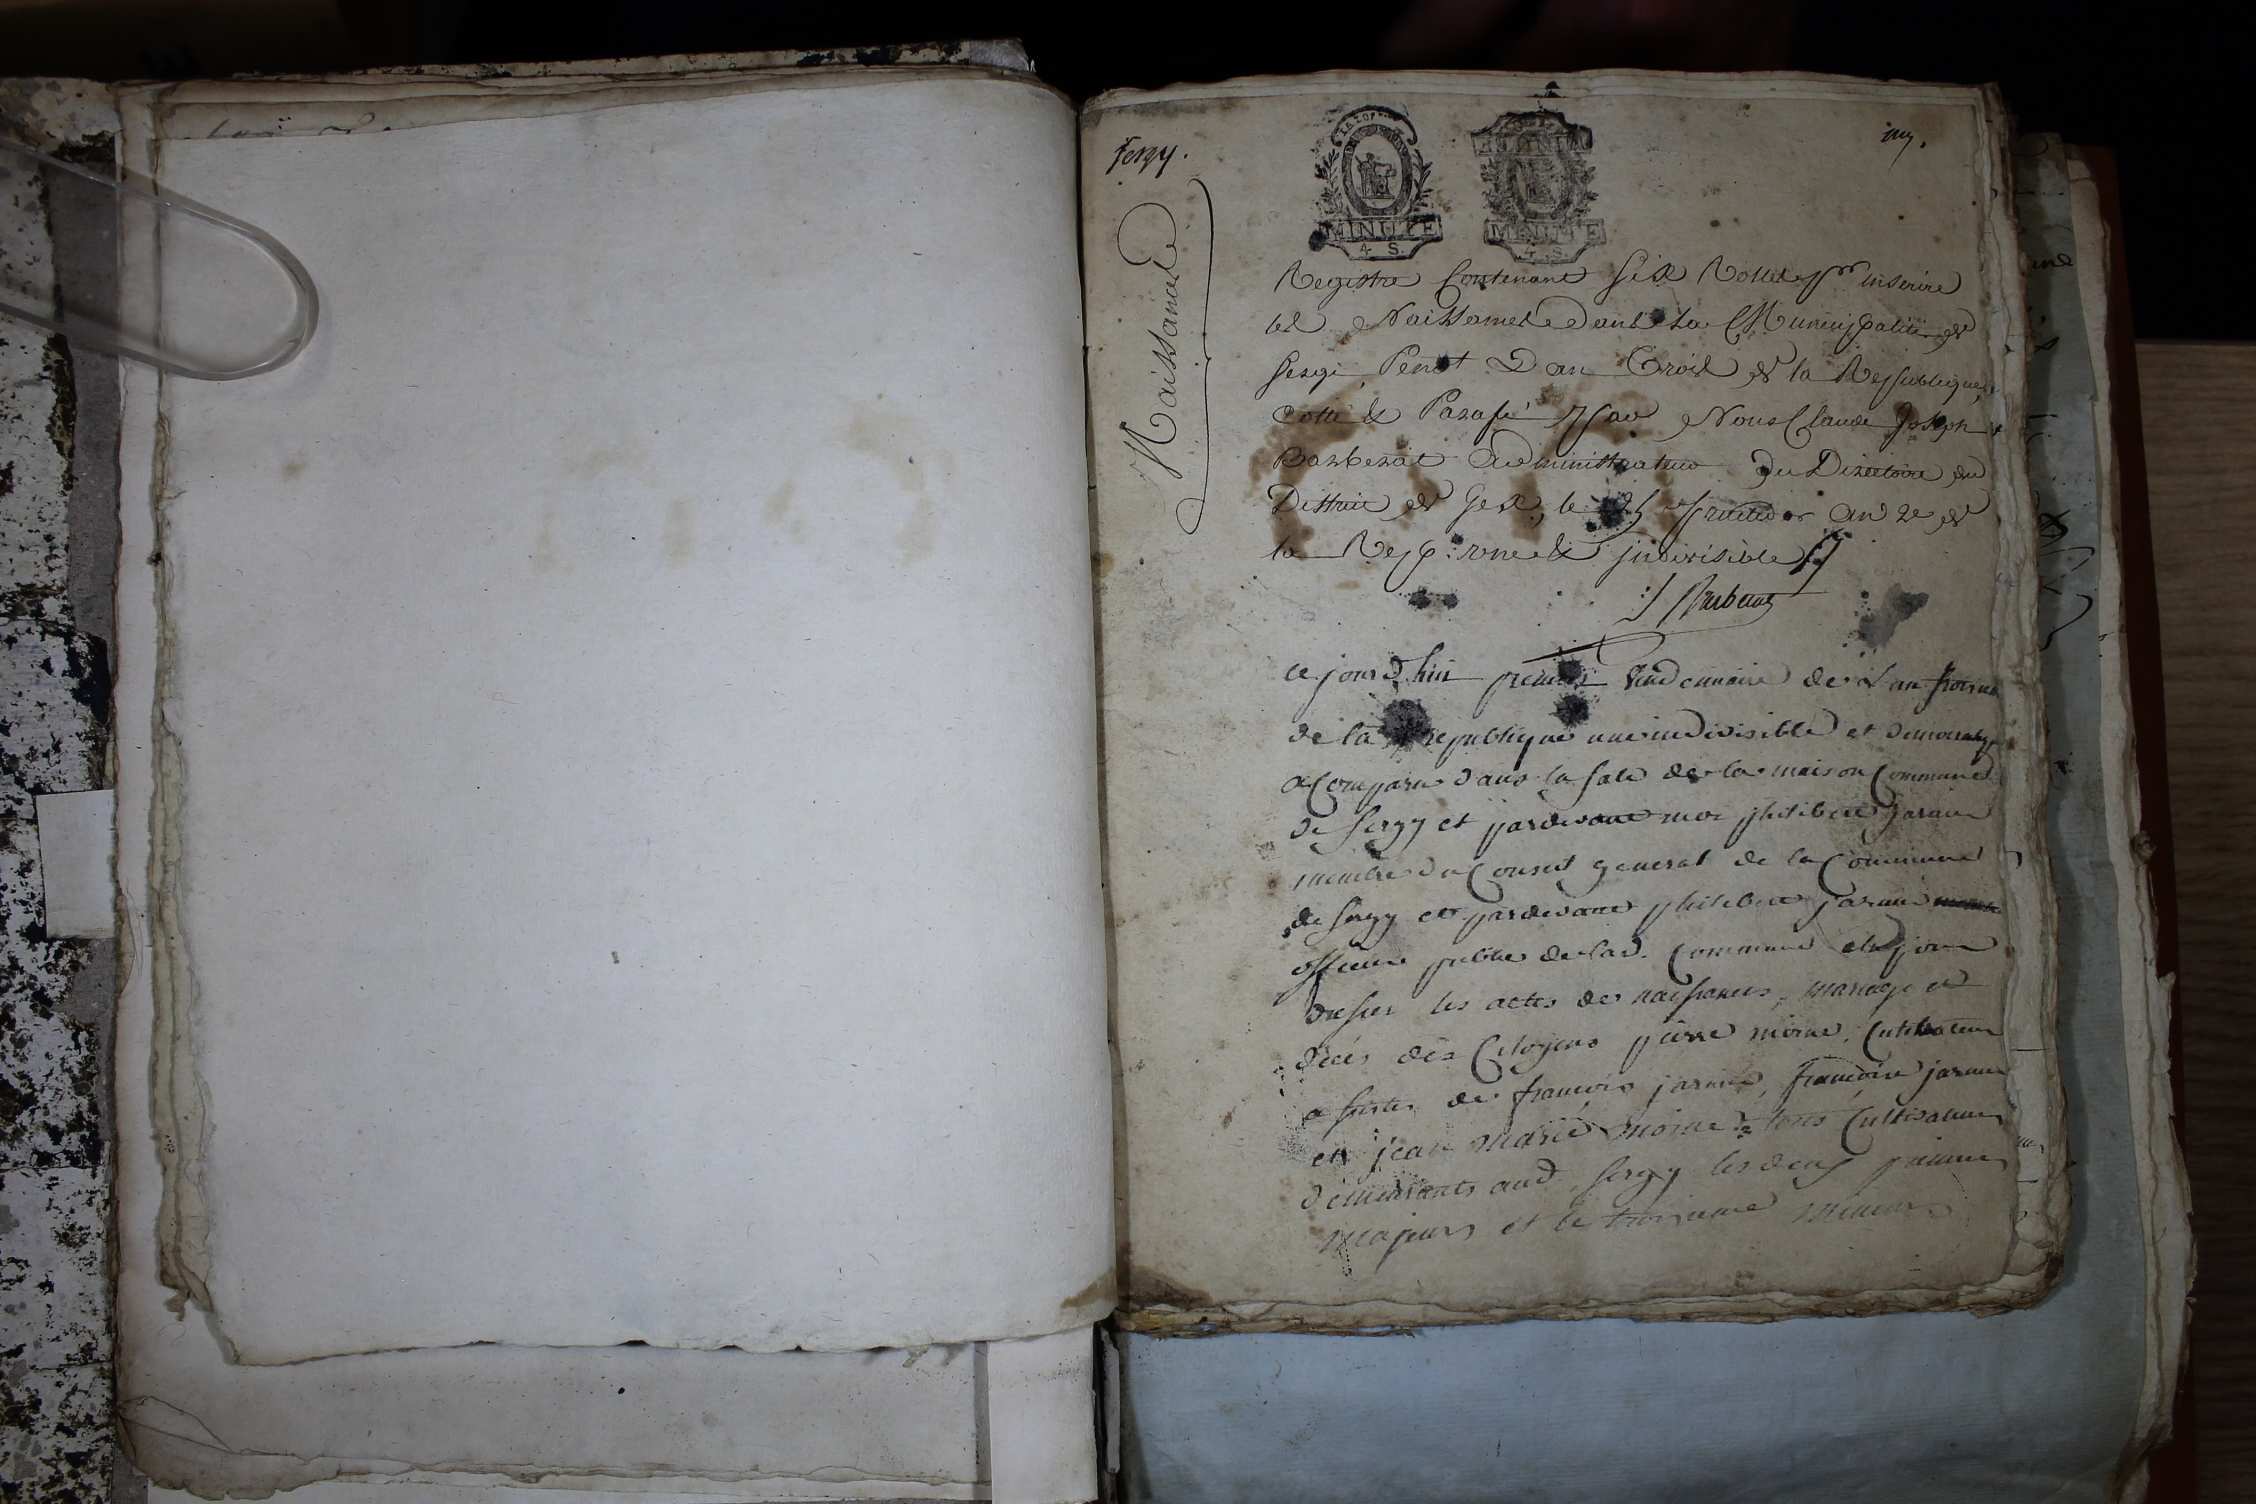 Sergy.
Naissance
MINUTE
4. S.
MINUTE
4. S.
Registre Contenant Six Rolles pr inscrire
les Naissances dans la Municipalité de
Sergi, Pendt L'an Trois de la Republique,
Cotté & Parafé par Nous Claude Joseph
Barberat Administrateur du Directoire du
District de Gex, le fructidor an 2e de
la Rep. une & indivisible
Barberat
ce jourd'hui premier Vendemiaire de L'an troisieme
de la republique une indivisible et democratique
a Comparu dans la sale de la maison Commune
de Sergy et pardevant moi philibert
membre du Conseil general de la Commune
de Sergy et pardevant philibert
officier public de lad. Commune elu pour
dresser les actes de naissances, mariage et
décés des Citoyens pierre moine, Cultivateur
assisté de francois francoise
et jean marie moine tous Cultivateurs
demeurants aud. Sergy les deux premiers
majeurs et le troisieme mineur